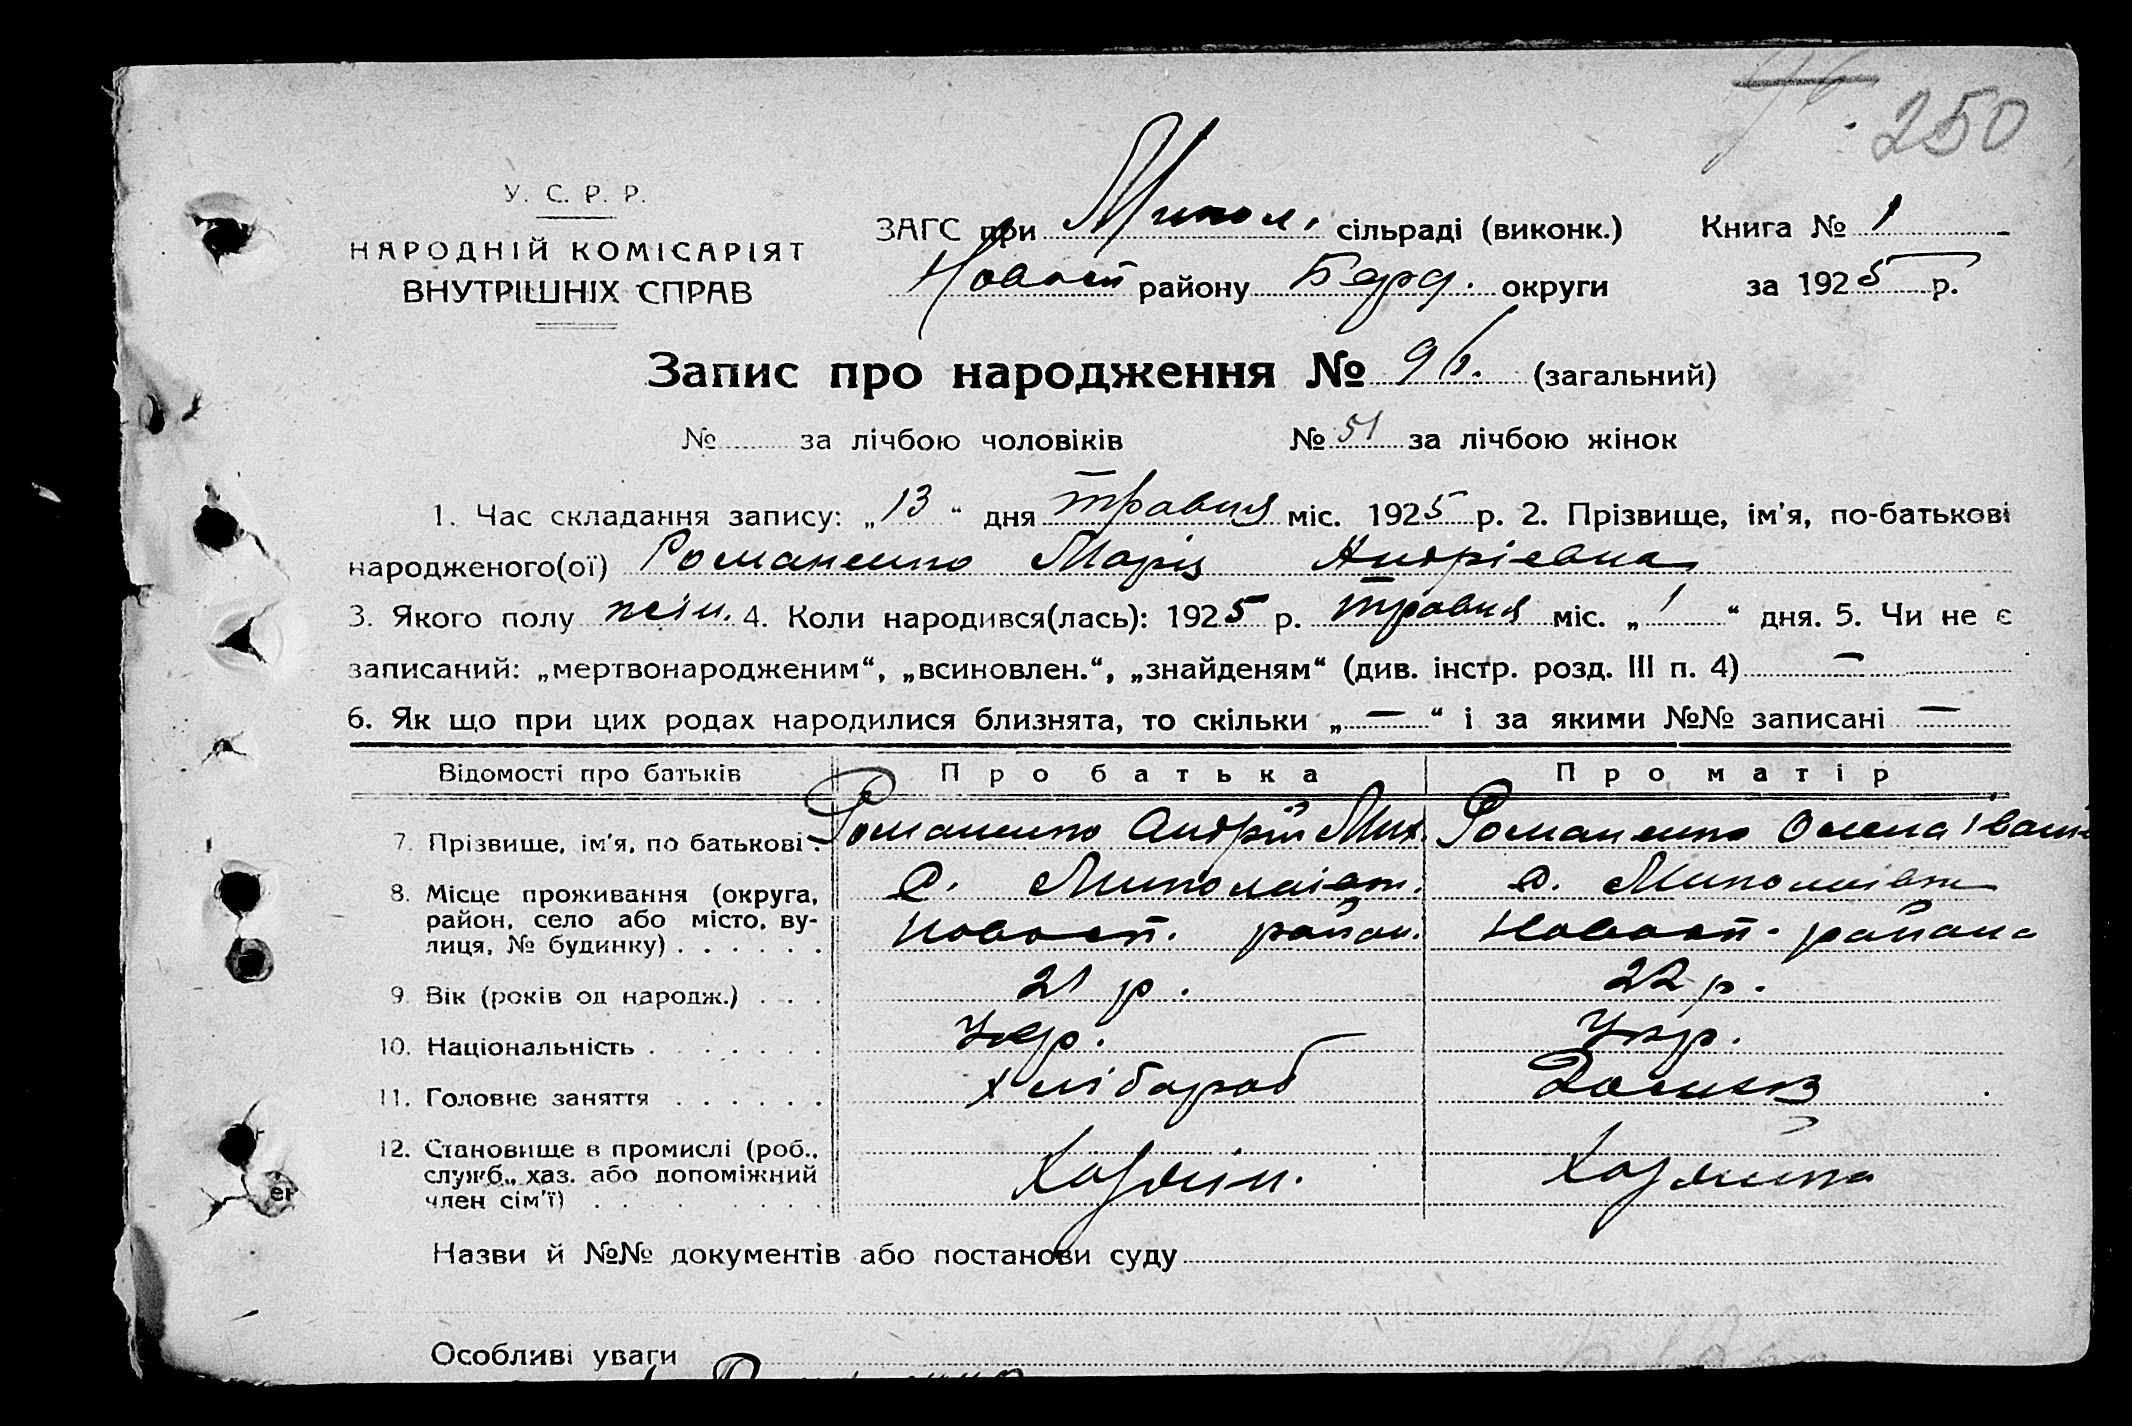 250
У. С. Р. Р.
НАРОДНІЙ КОМІСАРІЯТ
ВНУТРІШНІХ СПРАВ
ЗАГС при Микол. сільраді (виконк.) Книга № 1
Новосп району Берд. округи за 1925 р.
Запис про народження № 96. (загальний)
№ за лічбою чоловіків № 51 за лічбою жінок
1. Час складання запису: „13“ дня травня міс. 1925 р. 2. Прізвище, ім'я, по-батькові
народженого(ої) Романенко Марія Андрієвна
3. Якого полу жін. 4. Коли народився(лась): 1925 р. травня міс. „1“ дня. 5. Чи не є
записаний: „мертвонародженим“, „всиновлен.“, „знайденям“ (див. інстр. розд. III п. 4) —
6. Як що при цих родах народилися близнята, то скільки „—“ і за якими №№ записані —
Відомості про батьків Про батька Про матір
7. Прізвище, ім'я, по батькові . Романенко Андрій Мик. Романенко Олена Івані
8. Місце проживання (округа, район, село або місто, вулиця, № будинку) . . . . . . с. Миколаівк. Новосп. район. с. Миколаівк Новосп. района
9. Вік (років од народж.) . . . 21 р. 22 р.
10. Національність . . . . . . . Укр. Укр.
11. Головне заняття . . . . . . хлібароб Домхоз
12. Становище в промислі (роб., служб., хаз. або допоміжний член сім'ї) . . . . . . . . Хазяін. Хазяйка
Назви й №№ документів або постанови суду
Особливі уваги